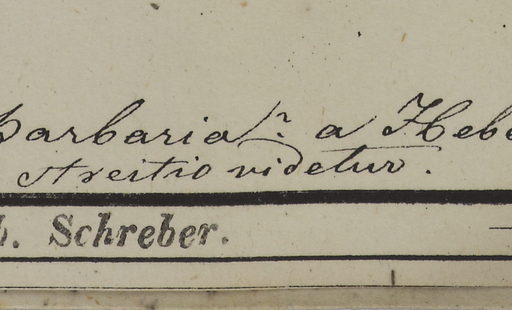 Barbaria a Hebe
Areitio videtur.
b. Schreber.